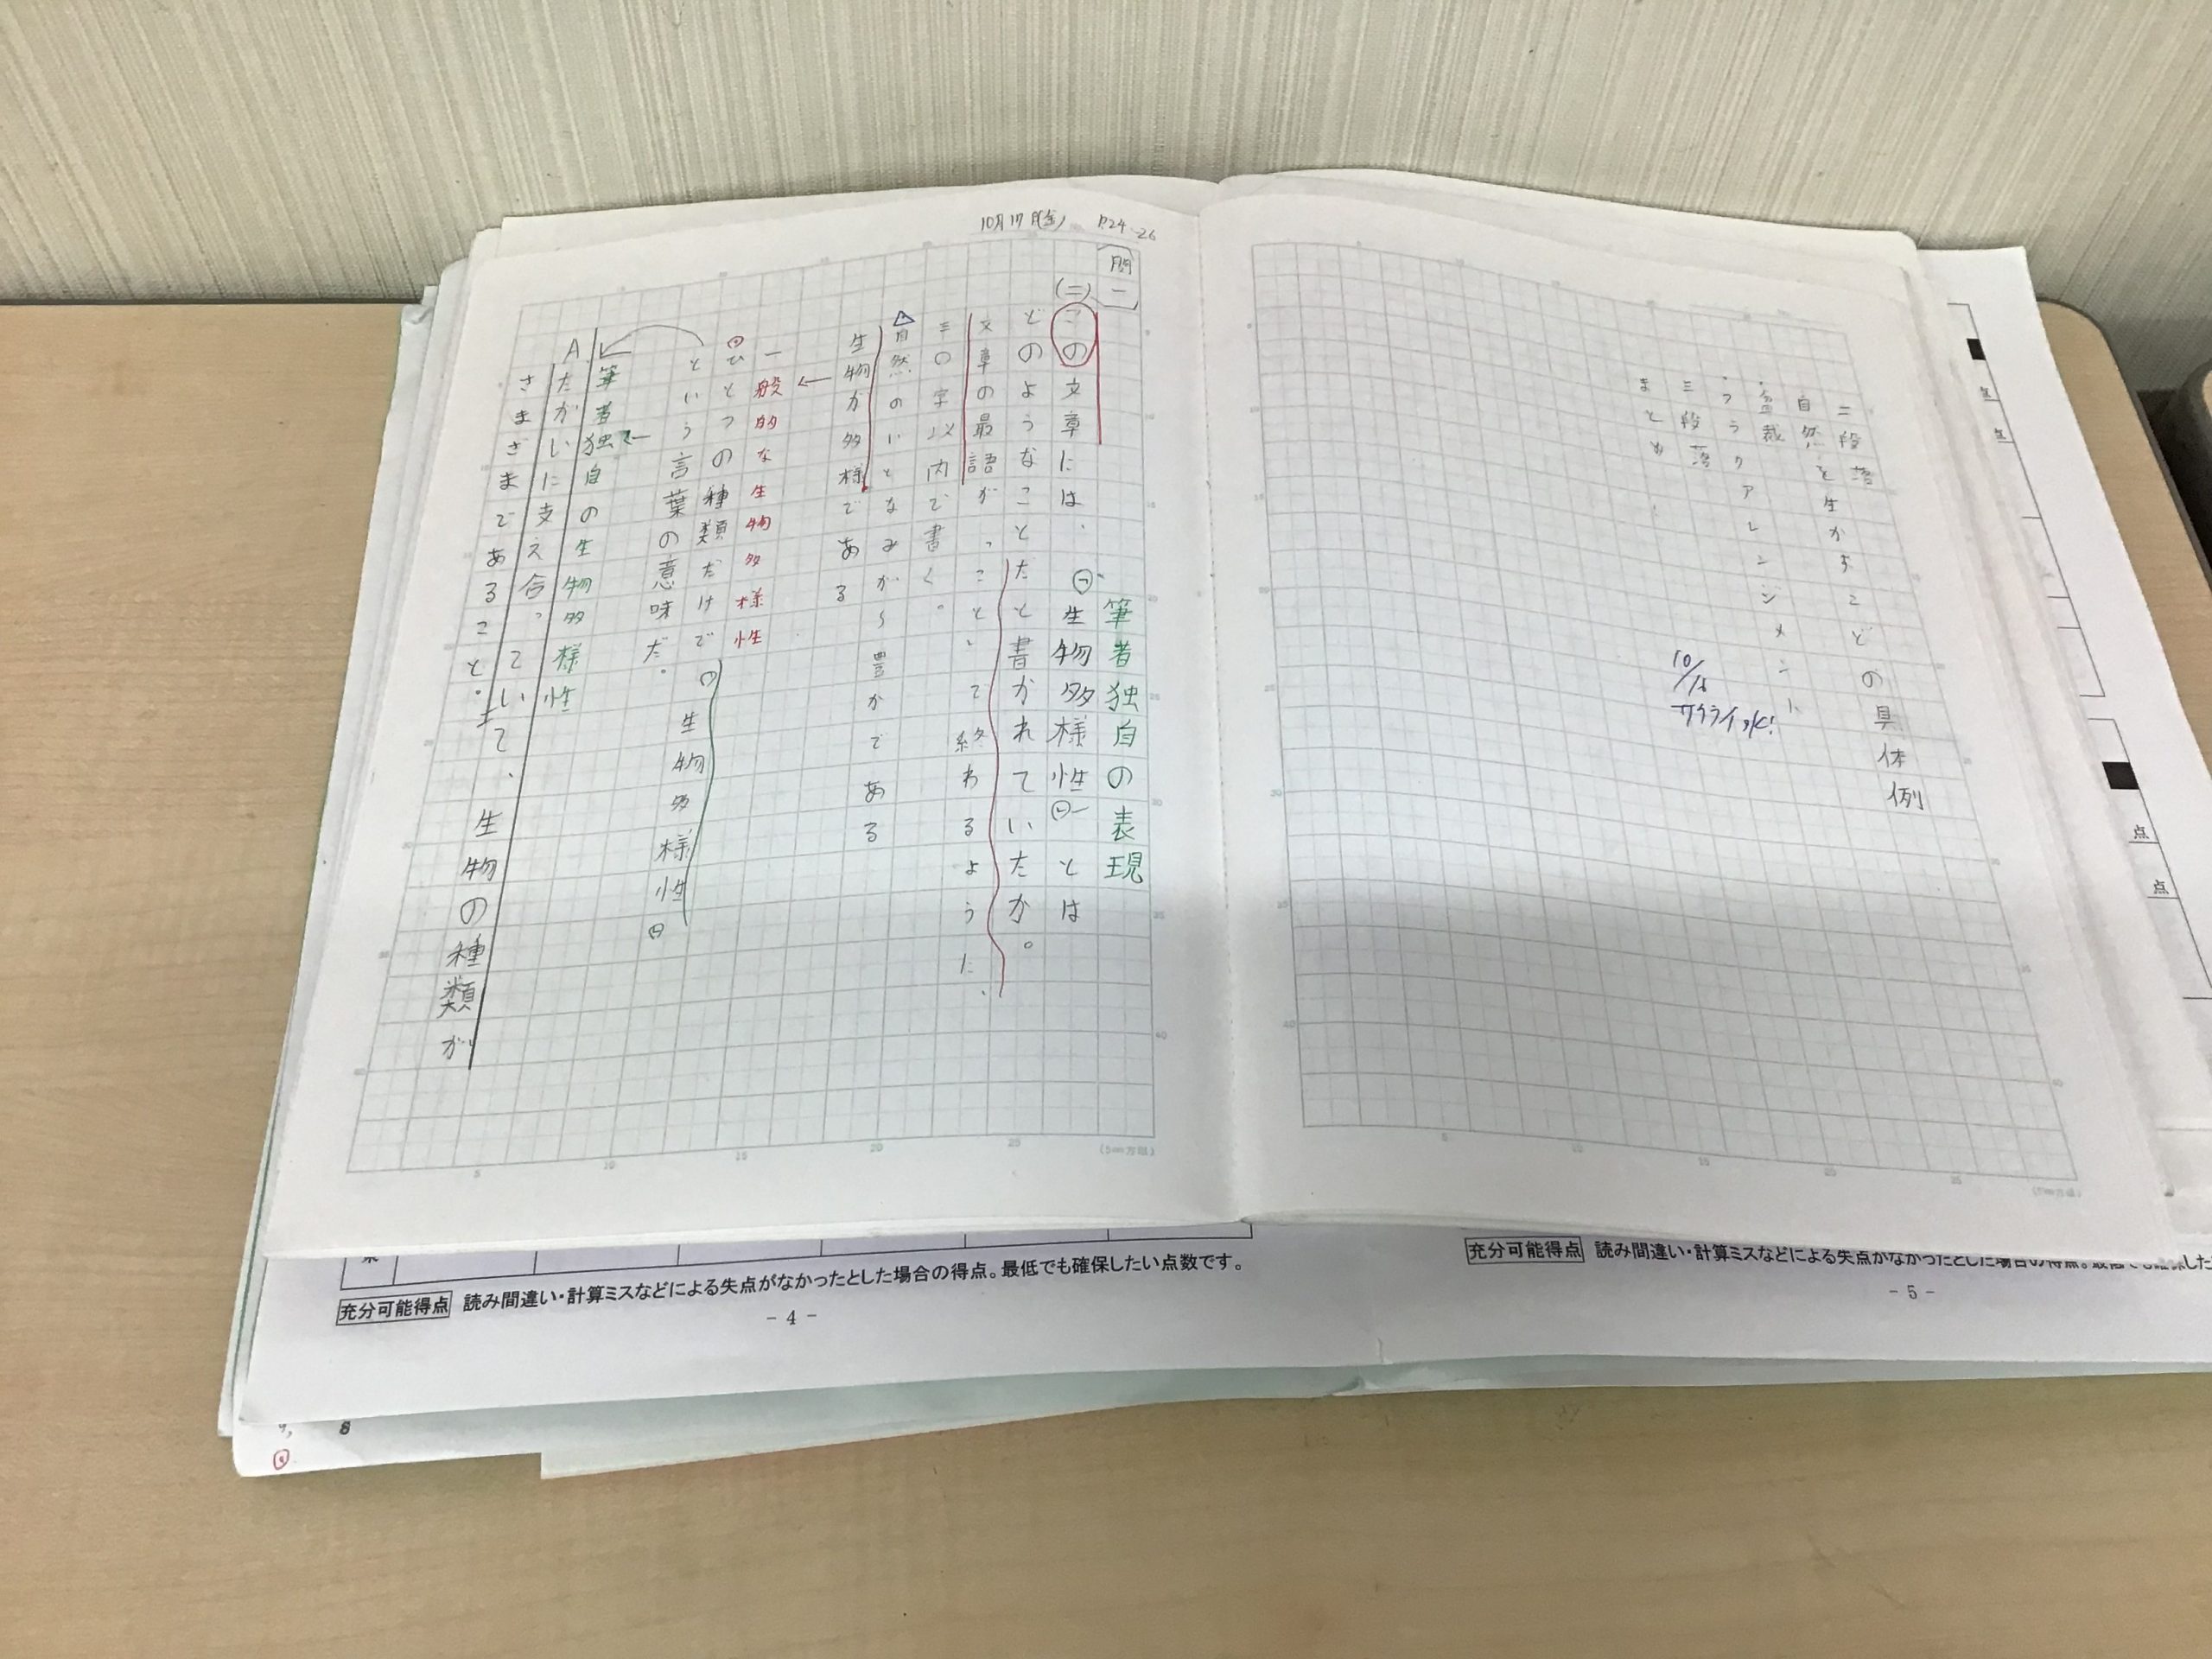 二段落
自然と生かすことの具体例
・盆栽
・フラワアレンジメント
三段落
まとめ
10月17日(金) P.24-26
問一
筆者独自の表現
(二)この文章には、「生物多様性」とは
どのようなことだと書かれていたか。
文章の最語が、こと、で終わるように、
三〇字以内で書く。
自然のいとなみが豊かである
生物が多様である
一般的な生物多様性
ひとつの種類だけで「生物多様性」
という言葉の意味だ。
筆者独自の生物多様性
A たがいに支え合っていて、生物の種類が
さまざまであること。
充分可能得点 読み間違い・計算ミスなどによる失点がなかったとした場合の得点。最低でも確保したい点数です。
- 4 -
充分可能得点 読み間違い・計算ミスなどによる失点がなかったとした場合の得点。
- 5 -
点
点
点
点
8